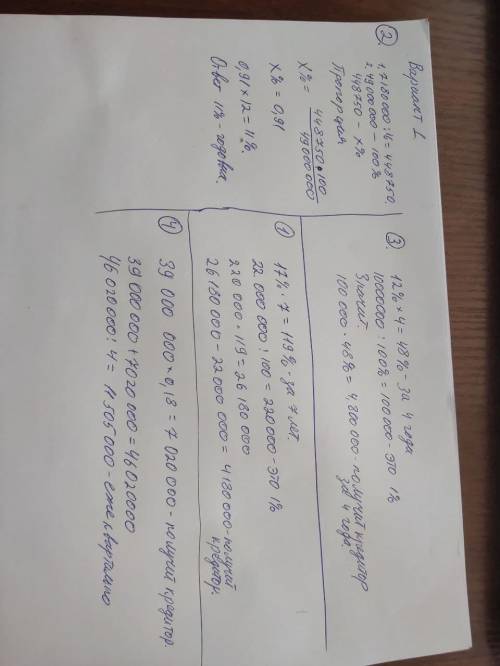 Вариант 1.
②
1. 7180000 : 4 = 448750
2. 49000000 - 100%
448750 - х%
Пропорция
х% = 448750 · 100 / 49000000
х% = 0,91
0,91 × 12 = 11%.
Ответ 11% - годовых.
③
12% × 4 = 48% - за 4 года
10000000 : 100% = 100000 - это 1%
Значит:
100 000 · 48% = 4,800 000 - получит кредитор
за 4 года.
①
17% · 7 = 119% - за 7 лет.
22 000 000 : 100 = 220000 - это 1%
220 000 · 119 = 26 180 000
26 180 000 - 22 000 000 = 4 180 000 - получит
кредитор.
④
39 000 000 · 0,18 = 7 020 000 - получит кредитор.
39 000 000 + 7020 000 = 46020000
46 020 000 : 4 = 11 505 000 - ежеквартально